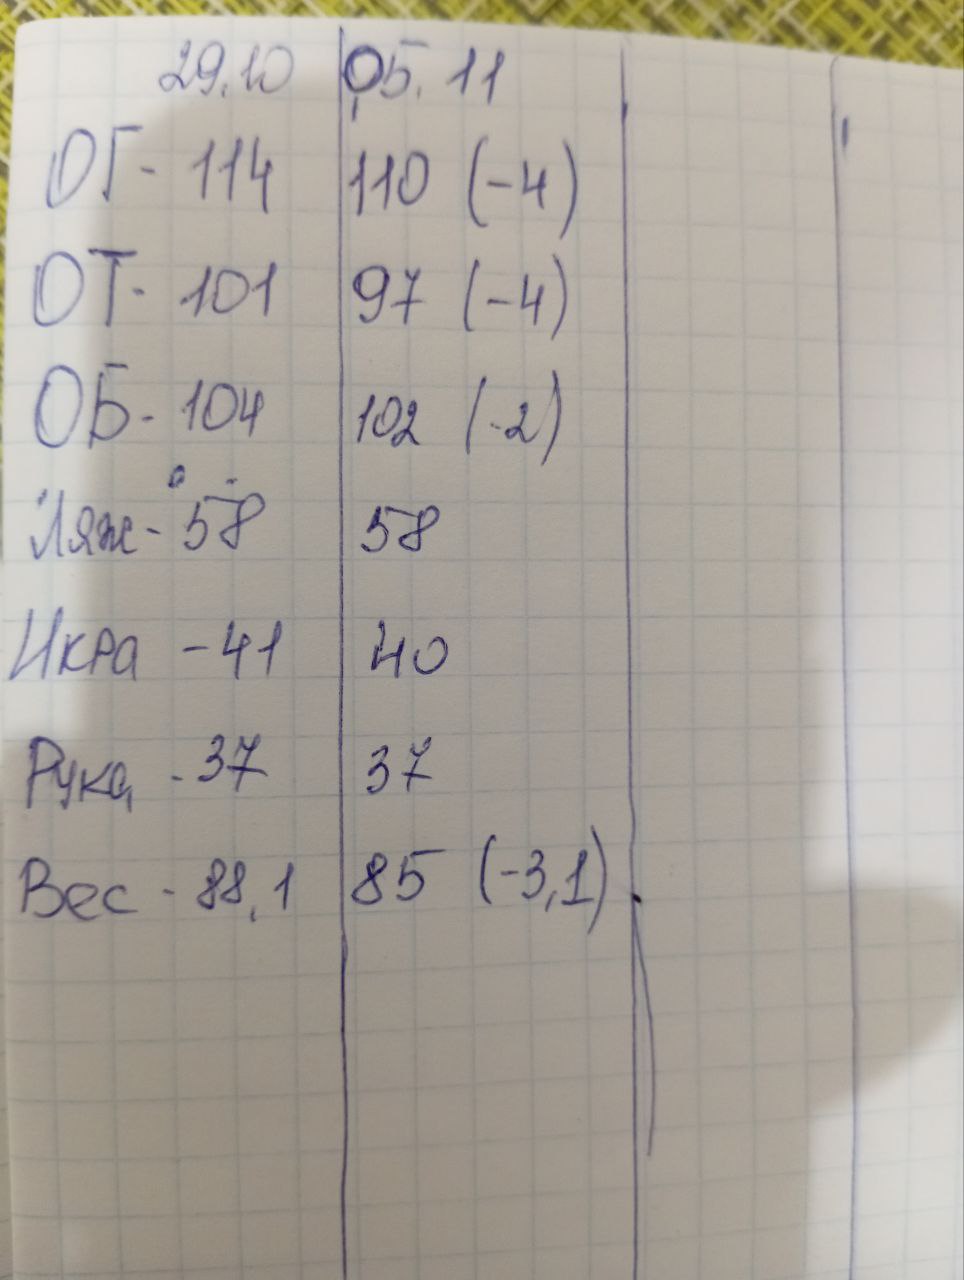 29.10 05.11
ОГ - 114 110 (-4)
ОТ - 101 97 (-4)
ОБ - 104 102 (-2)
Ляж - 58 58
Икра - 41 40
Рука - 37 37
Вес - 88,1 85 (-3,1)